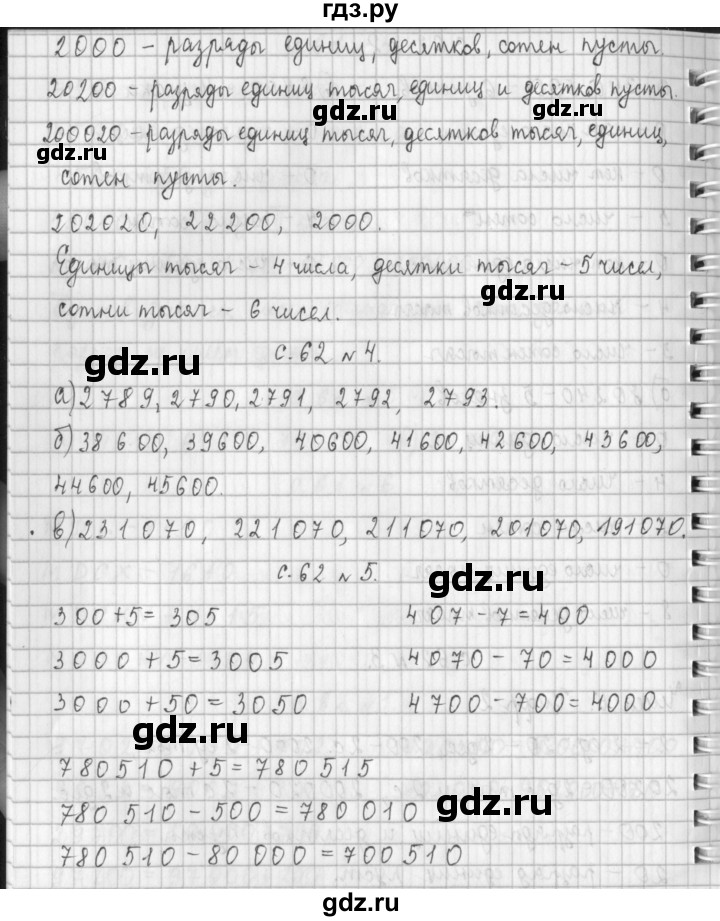 гдз.ру
2000 – разряды единиц, десятков, сотен пусты.
20200 – разряды единиц тысяч, единиц и десятков пусты.
gdz.ru
gdz.ru
200020 – разряды единиц тысяч, десятков тысяч, единиц,
gdz.ru
сотен пусты.
202020, 22200, 2000.
Единицы тысяч – 4 числа, десятки тысяч – 5 чисел,
gdz.ru
сотни тысяч – 6 чисел.
с. 62 № 4.
gdz.ru
а) 2789, 2790, 2791, 2792, 2793.
б) 38 600, 39600, 40600, 41600, 42600, 43600,
44600, 45600.
в) 231 070, 221 070, 211070, 201070, 191070.
с. 62 № 5.
gdz.ru
300 + 5 = 305 407 – 7 = 400
3000 + 5 = 3005 4070 – 70 = 4000
3000 + 50 = 3050 4700 – 700 = 4000
gdz.ru
780510 + 5 = 780 515
780 510 – 500 = 780 010
gdz.ru
780 510 – 80 000 = 700 510
gdz.ru